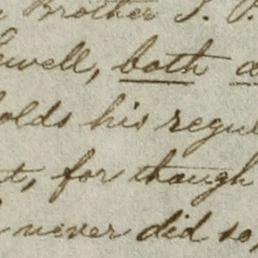 Brother J. P.
well, both a
olds his regul
t, for though
never did so,